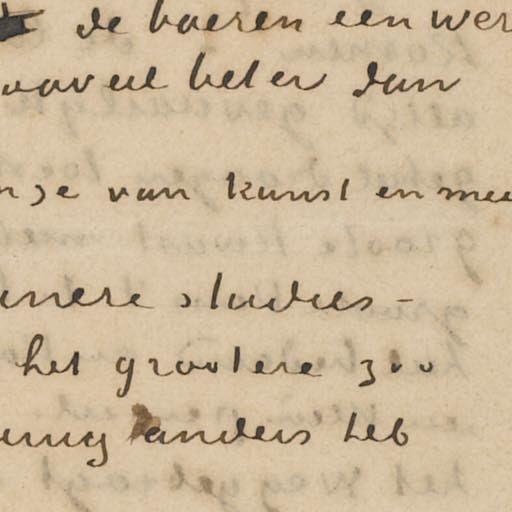 de boeren een wer
zooveel beter dan
van kunst en mee
studies –
het grootere zoo
anders heb